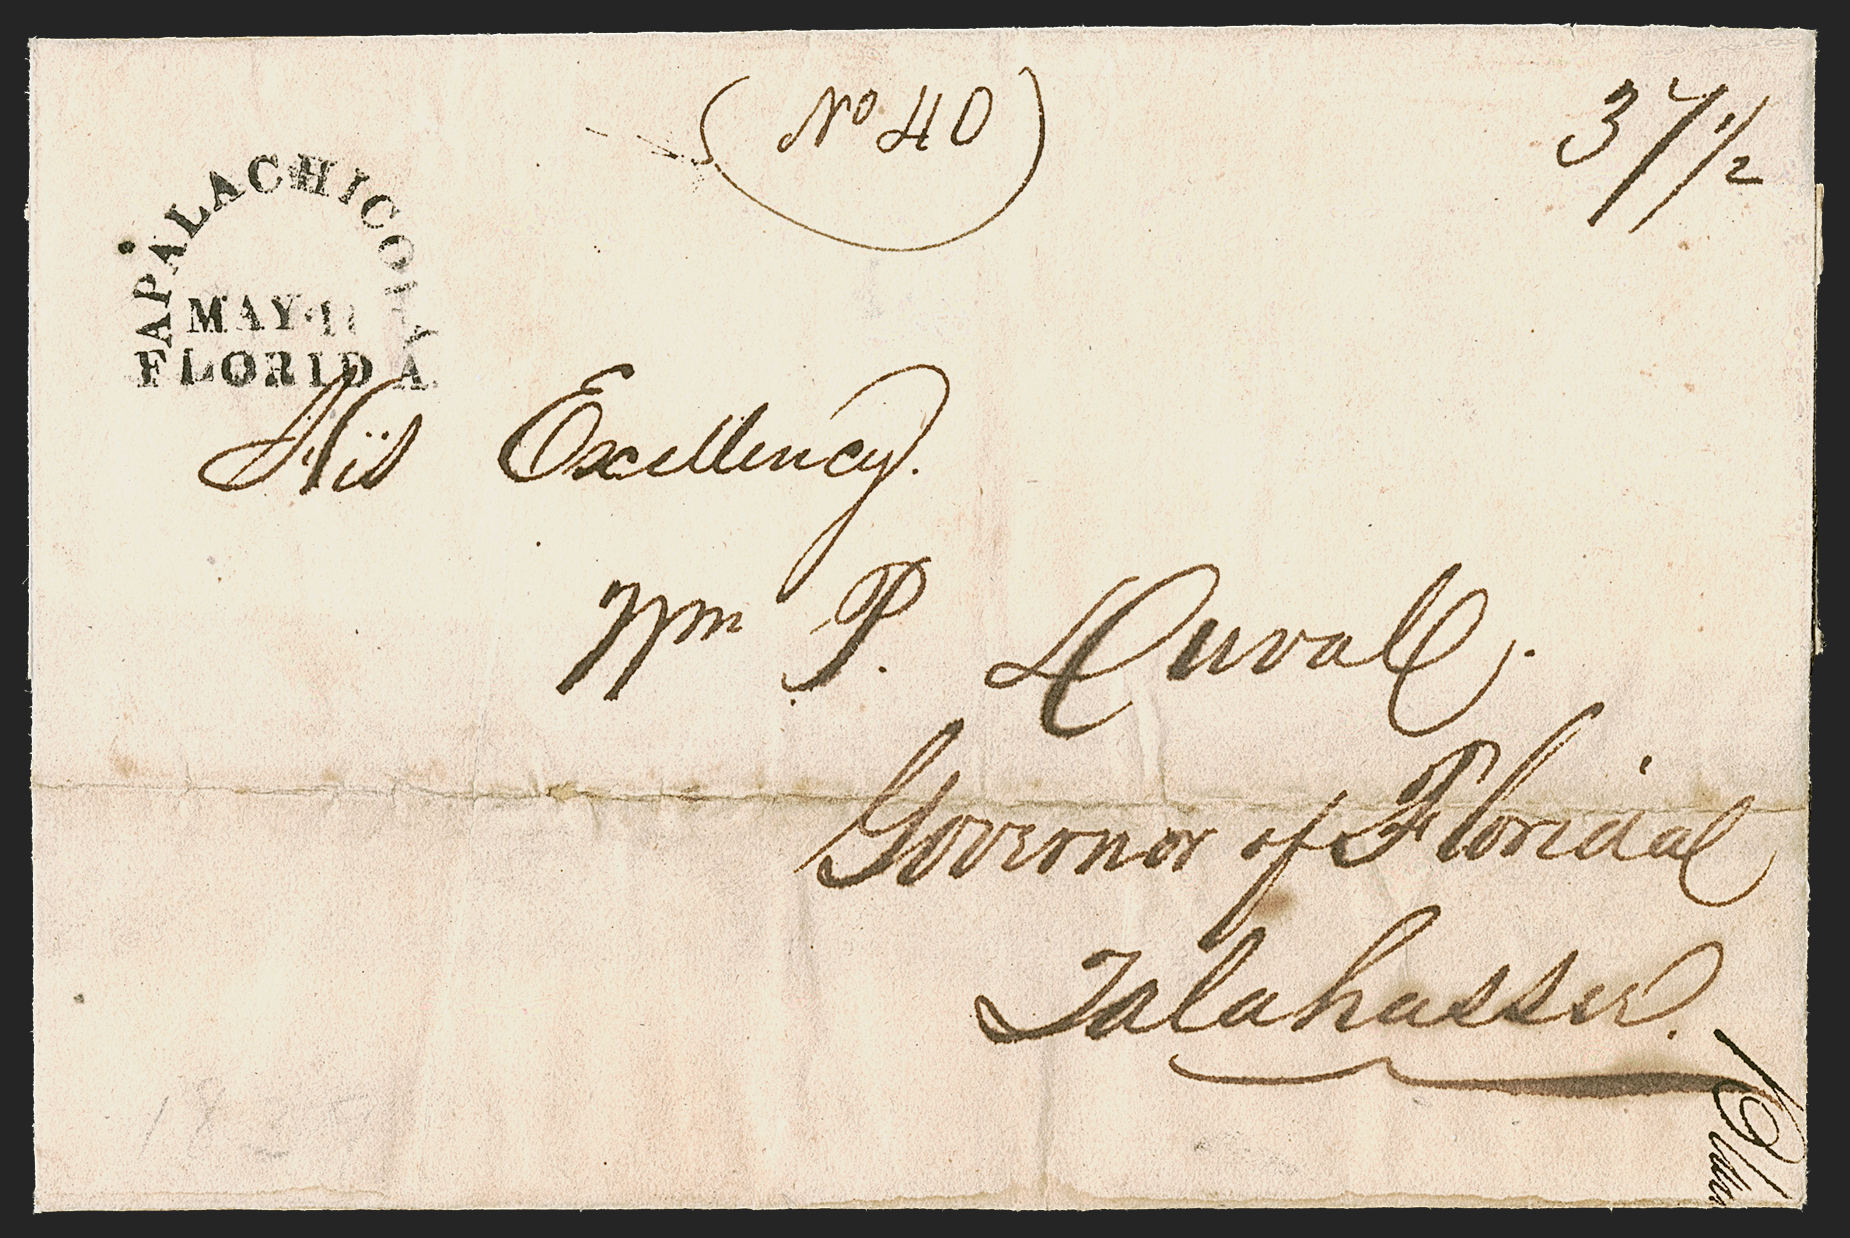 (No 40)
37 1/2
APALACHICOLA
MAY
FLORIDA
His Excellency.
Wm P. Duval.
Governor of Florida
Talahassee.